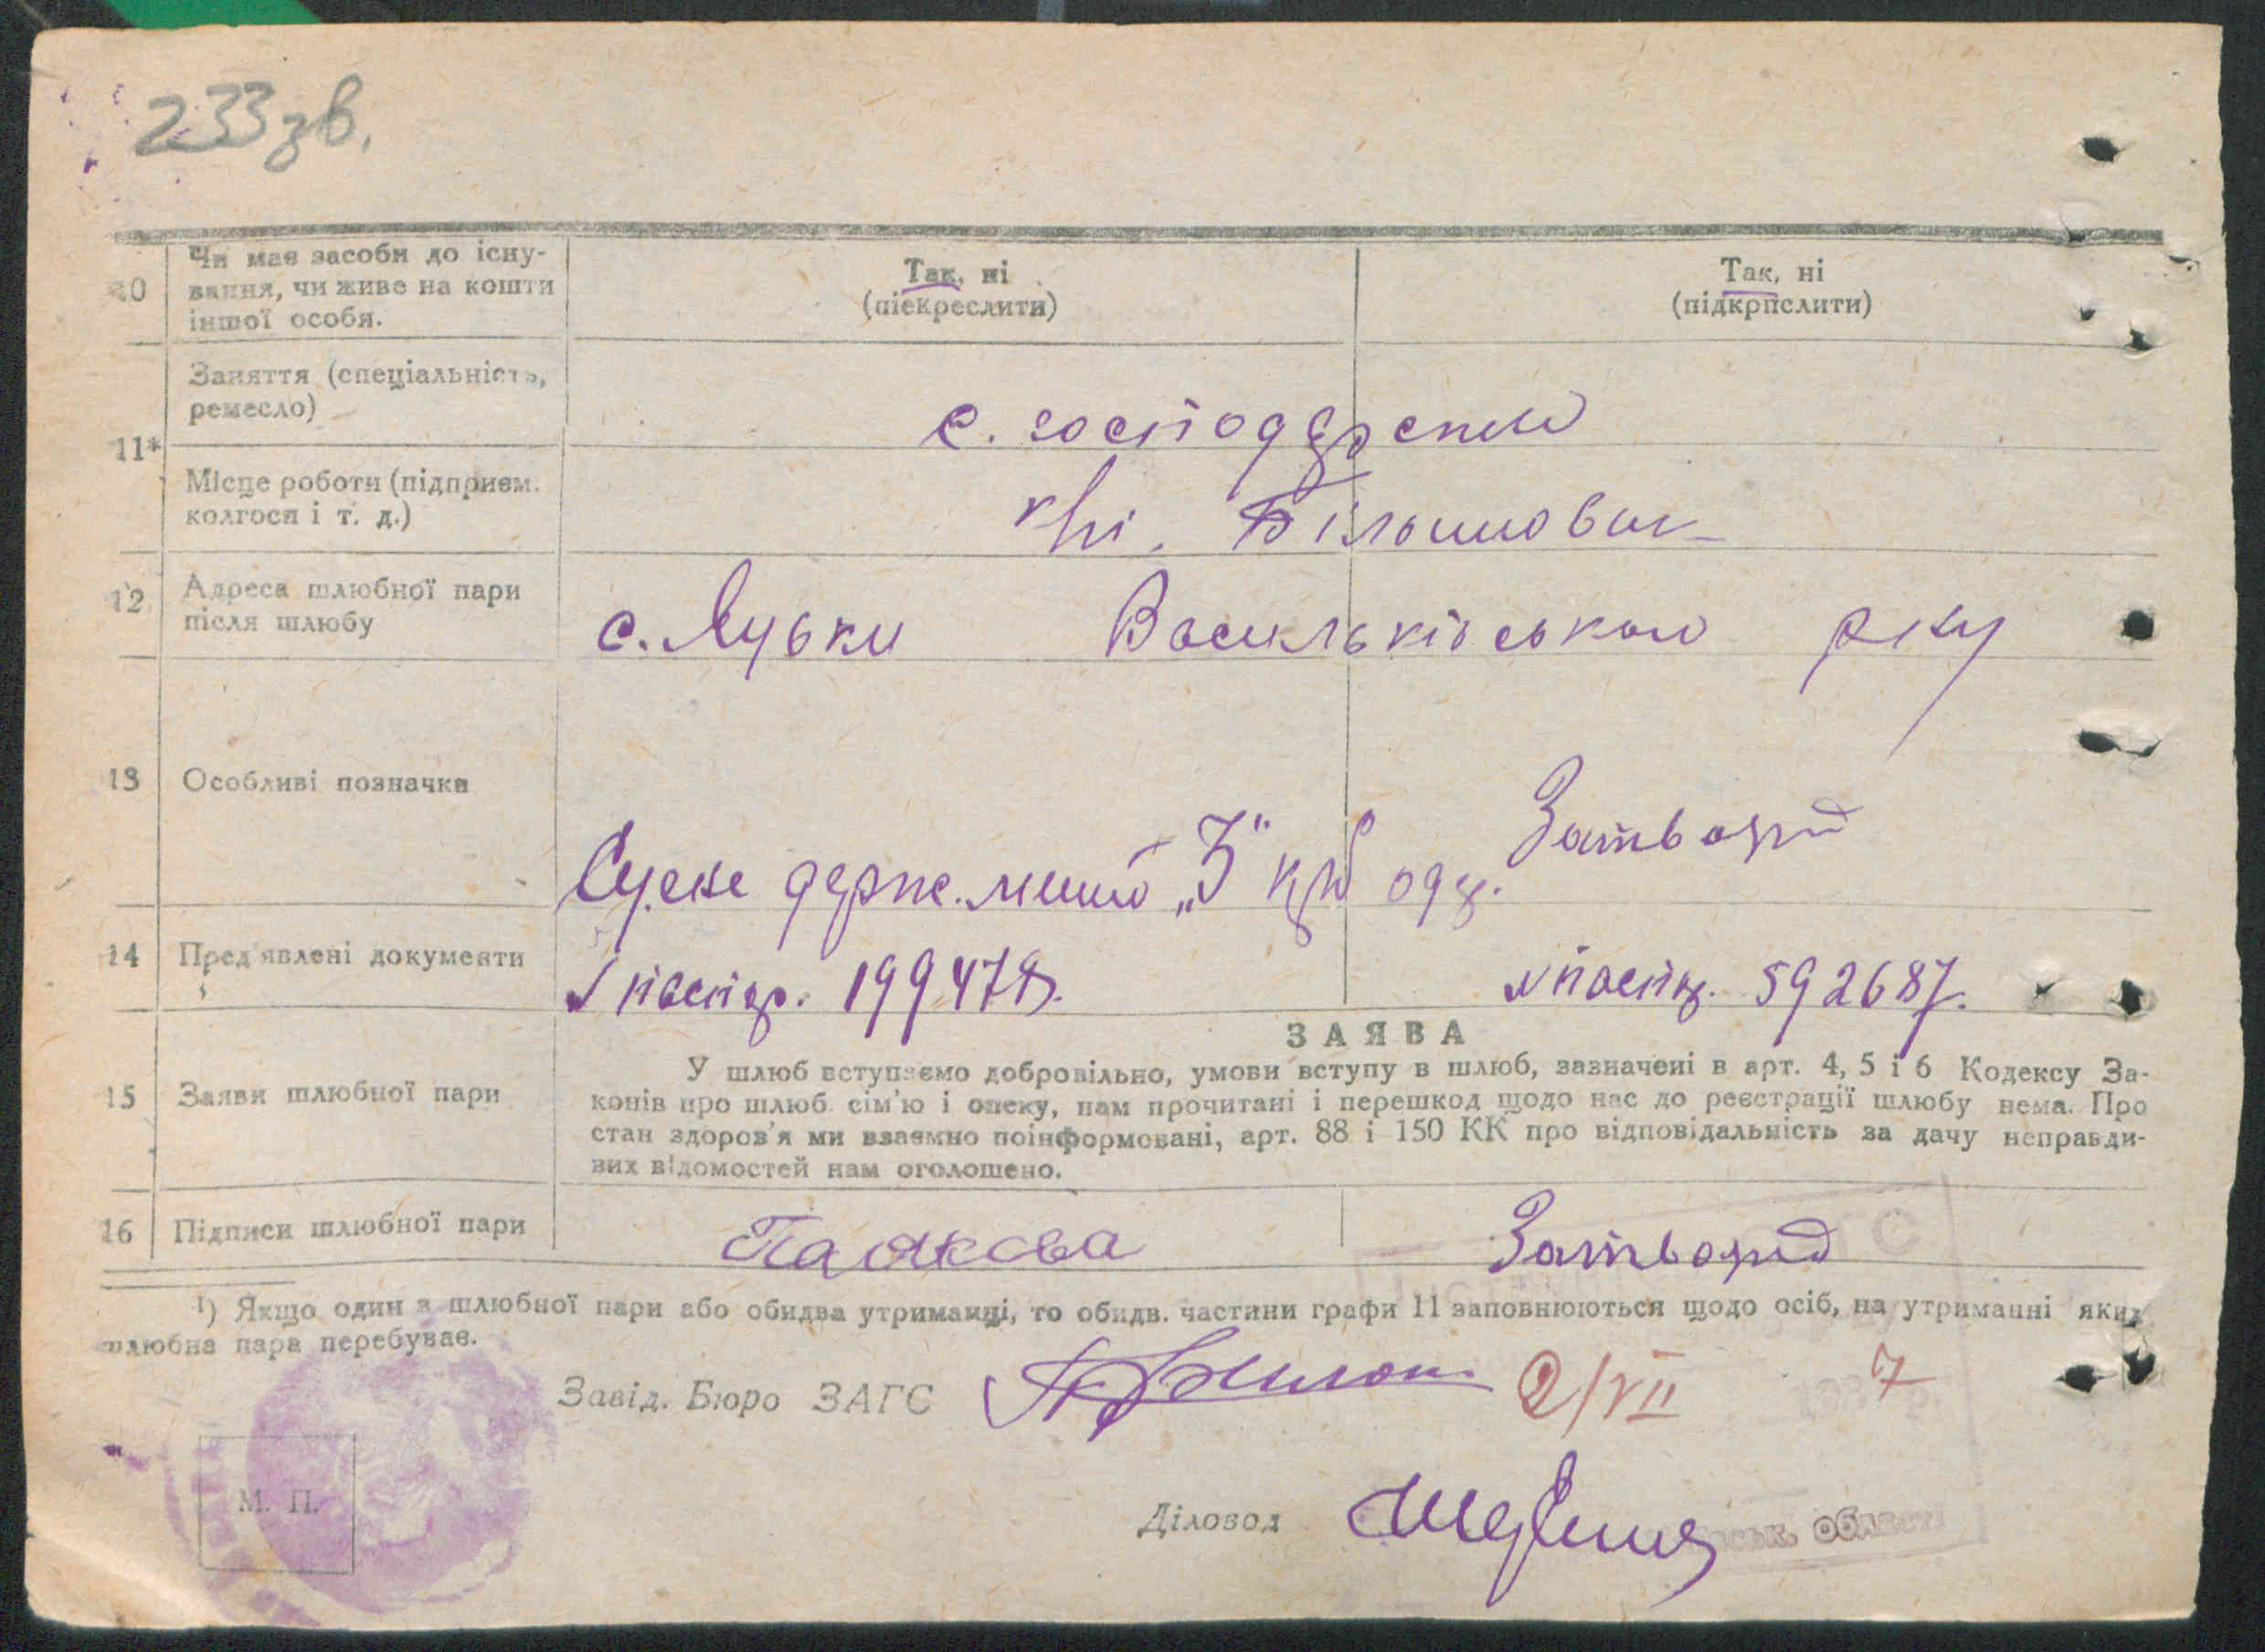 233 зв.
10 Чи має засоби до існу-
вання, чи живе на кошти
іншої особи.
Так, ні
(піекреслити)
Так, ні
(підкрпслити)
11*
Заняття (спеціальність,
ремесло)
с. господарстві
Місце роботи (підприєм.
колгосп і т. д.)
12 Адреса шлюбної пари
після шлюбу
с. Луб'ки Васильківського р-ну
13 Особливі позначки
держ. мито „3" крб одер.
14 Пред'явлені документи
паспор. 199478.
паспор. 592687.
ЗАЯВА
15 Заяви шлюбної пари
У шлюб вступаємо добровільно, умови вступу в шлюб, зазначені в арт. 4, 5 і 6 Кодексу За-
конів про шлюб. сім'ю і опеку, нам прочитані і перешкод щодо нас до реєстрації шлюбу нема. Про
стан здоров'я ми взаємно поінформовані, арт. 88 і 150 КК про відповідальність за дачу неправди-
вих відомостей нам оголошено.
16 Підписи шлюбної пари
¹) Якщо один з шлюбної пари або обидва утриманці, то обидв. частини графи 11 заповнюються щодо осіб, на утриманні яких
шлюбна пара перебуває.
Завід. Бюро ЗАГС
2/VII 7
М. П.
Діловод
ськ. області